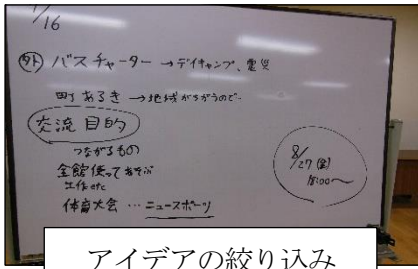 1/16
外 バスチャーター → デイキャンプ、震災
町あるき → 地域がちがうので.
交流目的
つながるもの
全館使ってあそぶ
工作etc
体育大会 … ニュースポーツ
8/27(金)
18:00〜
アイデアの絞り込み